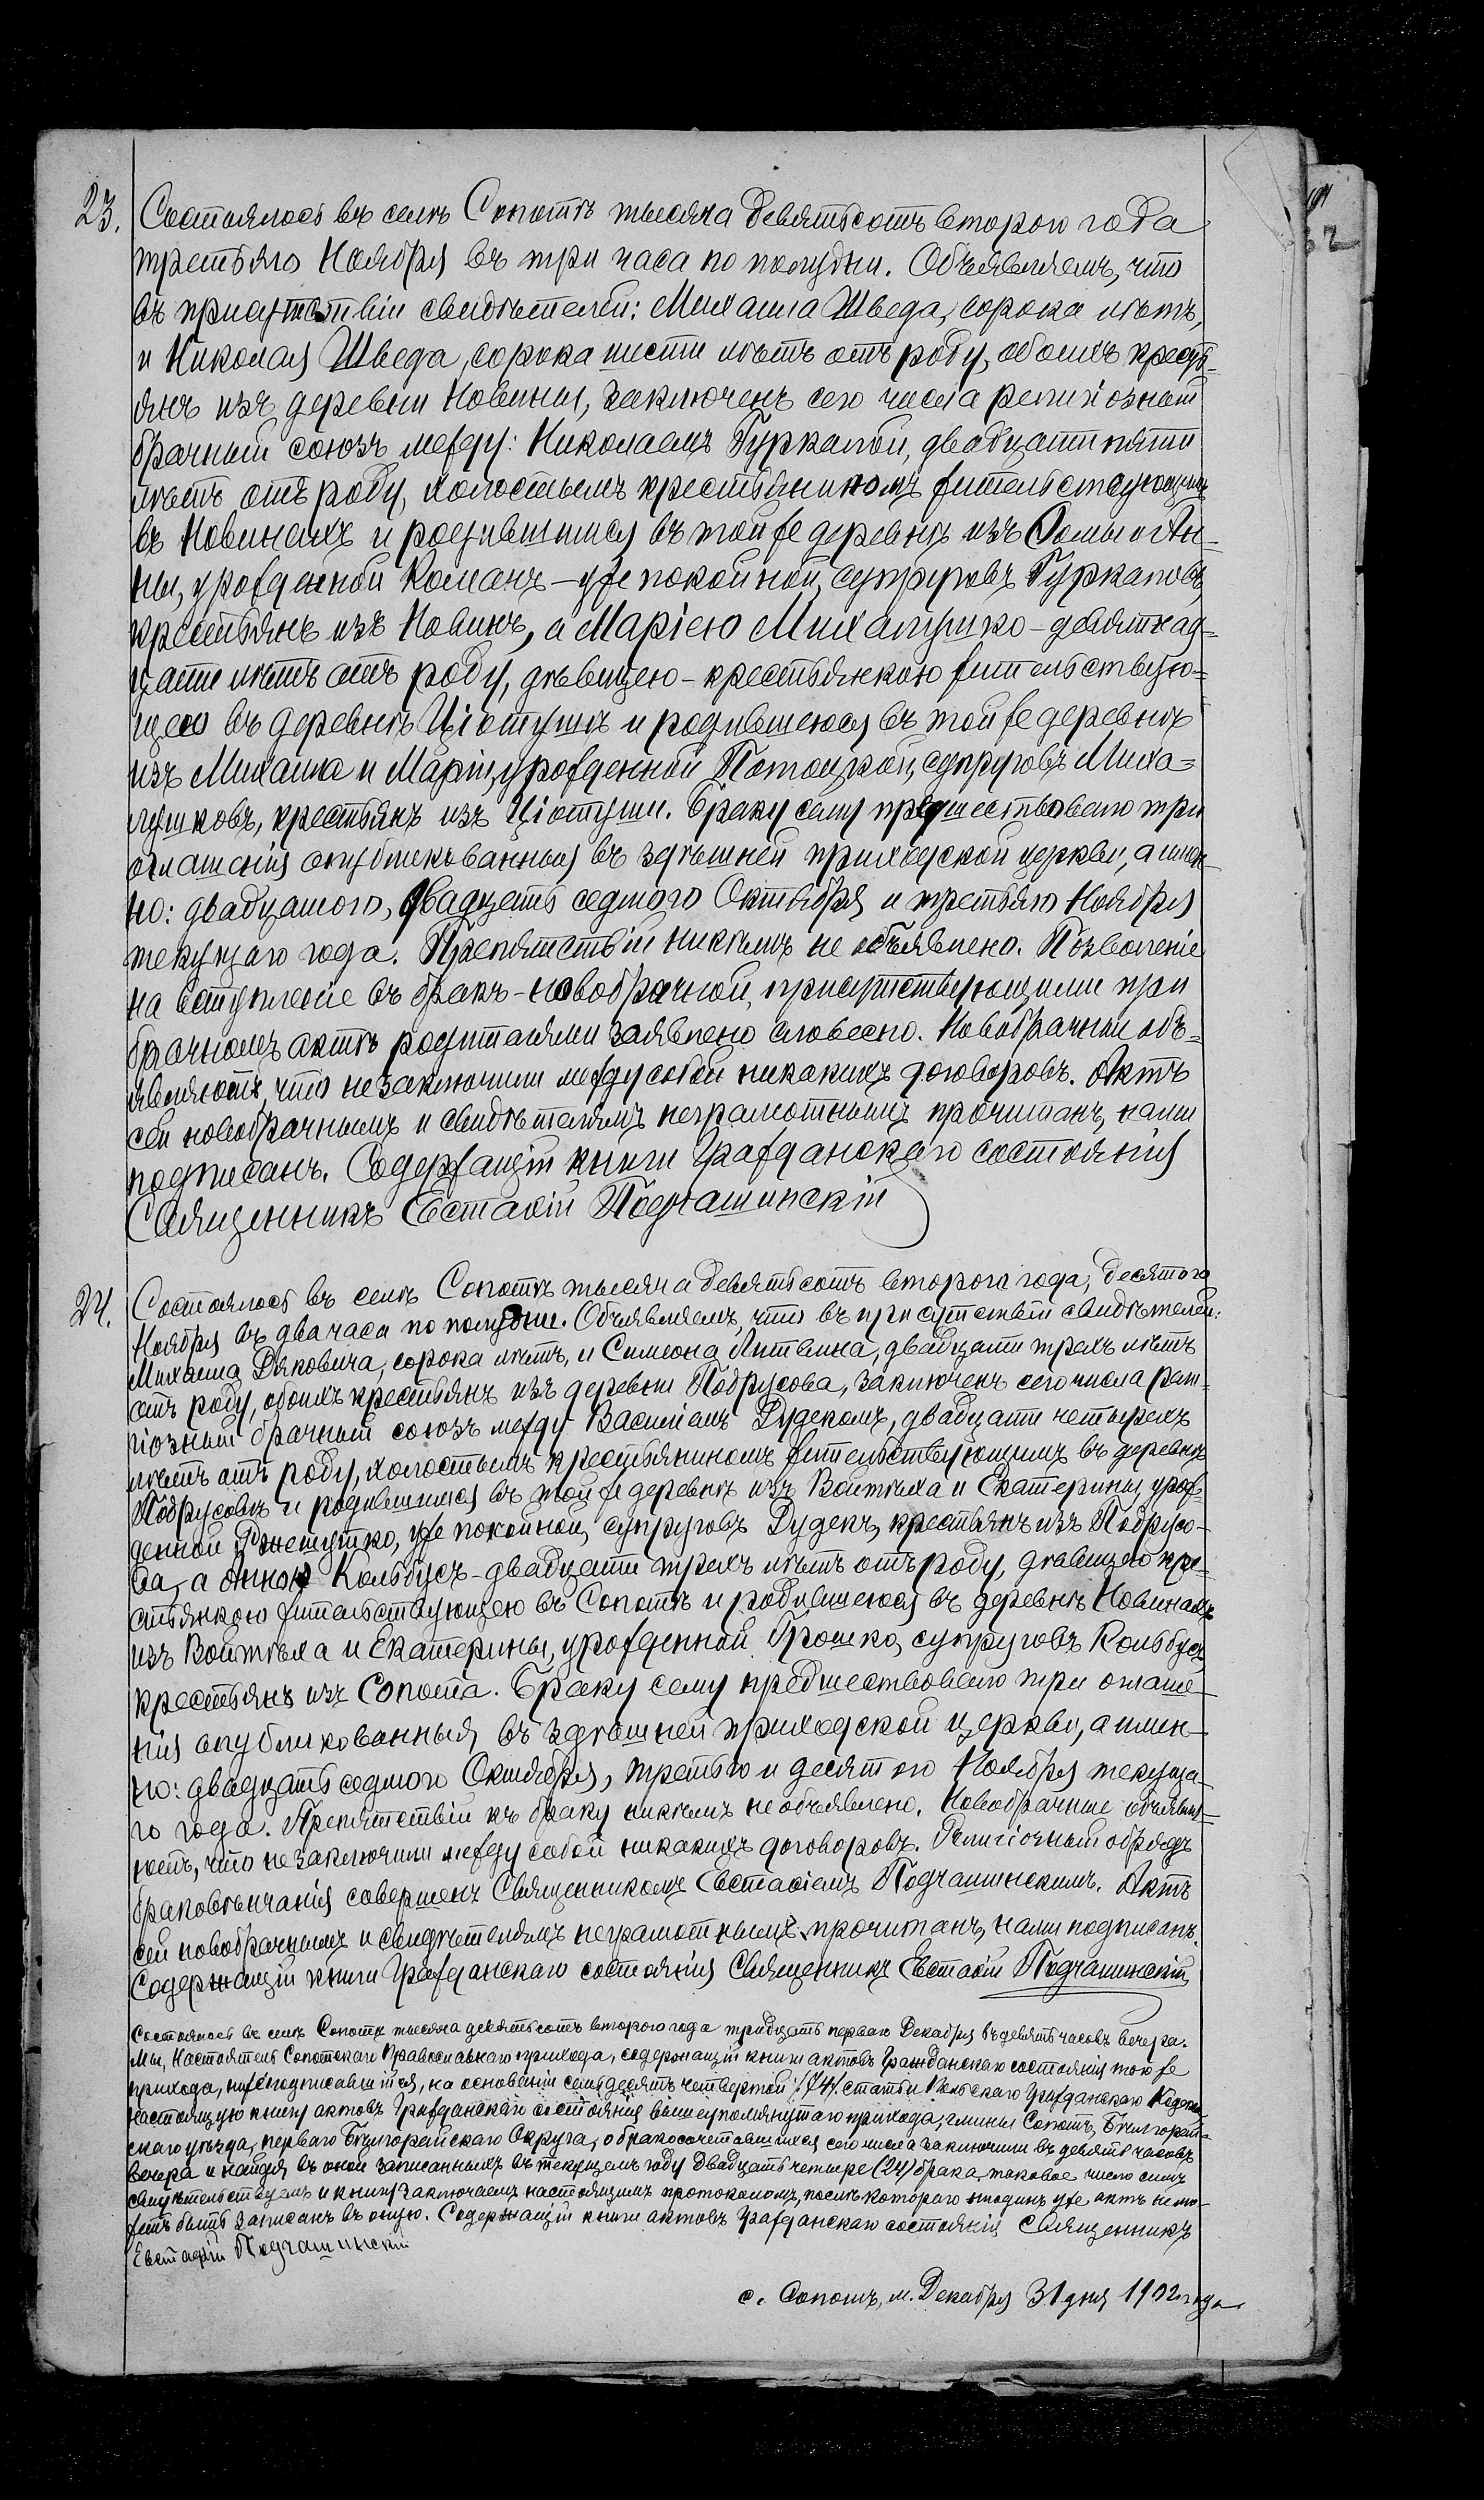 23. Состоялось въ селѣ Сопотѣ тысяча девятьсотъ второго года
третьяго Ноября въ три часа по полудни. Объявляемъ, что
въ присутствіи свидѣтелей: Михаила Шведа, сорока лѣтъ,
и Николая Шведа, сорока шести лѣтъ отъ роду, обоихъ кресть-
янъ изъ деревни Новины, заключенъ сего числа религіозный
брачный союзъ между: Николаемъ Гуркалой, двадцати пяти
лѣтъ отъ роду, холостымъ крестьяниномъ жительствующимъ
въ Новинахъ и родившимся въ той же деревнѣ изъ Ѳомы и Ан-
ны, урожденной Команъ – уже покойной, супруговъ Гуркаловъ,
крестьянъ изъ Новинъ, а Маріею Михалушко – девятнад-
цати лѣтъ отъ роду, дѣвицею – крестьянкою жительствую-
щею въ деревнѣ Ціотушѣ и родившеюся въ той же деревнѣ
изъ Михаила и Маріи, урожденной Потоцкой, супруговъ Миха-
лушковъ, крестьянъ изъ Ціотуши. Браку сему предшествовало три
оглашенія опубликованныя въ здѣшней приходской церкви, а имен-
но: двадцатого, двадцать седмого Октября и третьяго Ноября
текущаго года. Препятствій никѣмъ не объявлено. Позволеніе
на вступленіе въ бракъ – новобрачной, присутствующими при
брачномъ актѣ родителями заявлено словесно. Новобрачныи объ-
являютъ, что незаключили между собой никакихъ договоровъ. Актъ
сей новобрачнымъ и свидѣтелямъ неграмотнымъ прочитанъ, нами
подписанъ. Содержащій книги Гражданскаго состоянія
Священникъ Евстафій Подчашинскій
24. Состоялось въ селѣ Сопотѣ тысяча девятьсотъ второго года, десятого
Ноября въ два часа по полудни. Объявляемъ, что въ присутствіи свидѣтелей:
Михаила Дяковича, сорока лѣтъ, и Симеона Литвина, двадцати трехъ лѣтъ
отъ роду, обоихъ крестьянъ изъ деревни Подрусова, заключенъ сего числа рели-
гіозный брачный союзъ между Василіемъ Дудекомъ, двадцати четырехъ
лѣтъ отъ роду, холостымъ крестьяниномъ жительствующимъ въ деревнѣ
Подрусовѣ и родившимся въ той же деревнѣ изъ Войтѣха и Екатерины, урож-
денной уже покойной, супруговъ Дудекъ, крестьянъ изъ Подрусо-
ва, а Анною Кольбусъ – двадцати трехъ лѣтъ отъ роду, дѣвицею кре-
стьянкою жительствующею въ Сопотѣ и родившеюся въ деревнѣ Новинахъ
изъ Войтѣха и Екатерины, урожденной Грошко, супруговъ Кольбусъ,
крестьянъ изъ Сопота. Браку сему предшествовало три оглаше-
нія опубликованныя въ здѣшней приходской церкви, а имен-
но: двадцать седмого Октября, третьяго и десятого Ноября текуща-
го года. Препятствій къ браку никѣмъ не объявлено. Новобрачные объявля-
ютъ, что незаключили между собой никакихъ договоровъ. Религіозный обрядъ
браковѣнчанія совершенъ Священникомъ Евстафіемъ Подчашинскимъ. Актъ
сей новобрачнымъ и свидѣтелямъ неграмотнымъ прочитанъ, нами подписанъ.
Содержащій книги Гражданскаго состоянія Священникъ Евстафій Подчашинскій
Состоялось въ селѣ Сопотѣ тысяча девятьсотъ второго года тридцать перваго Декабря въ девять часовъ вечера.
Мы, Настоятель Сопотскаго Православнаго прихода, содержащій книги актовъ Гражданскаго состоянія того же
прихода, нижеподписавшійся, на основаніи семьдесятъ четвертой /74/ статьи Польскаго Гражданскаго Кодекса
настоящую книгу актовъ Гражданскаго состоянія вышеупомянутаго прихода, гмины Сопотъ, Бѣлгорай-
скаго уѣзда, перваго Бѣлгорайскаго Округа, о бракосочетавшихся сего числа заключили въ девять часовъ
вечера и найдя въ оной записанныхъ въ текущемъ году двадцать четыре (24) брака, таковое число симъ
свидѣтельствуемъ и книгу заключаемъ настоящимъ протоколомъ, послѣ котораго ниодинъ уже актъ не мо-
жетъ быть записанъ въ оную. Содержащій книги актовъ Гражданскаго состоянія Священникъ
Евстафій Подчашинскій
с. Сопотъ, м. Декабря 31 дня 1902 года